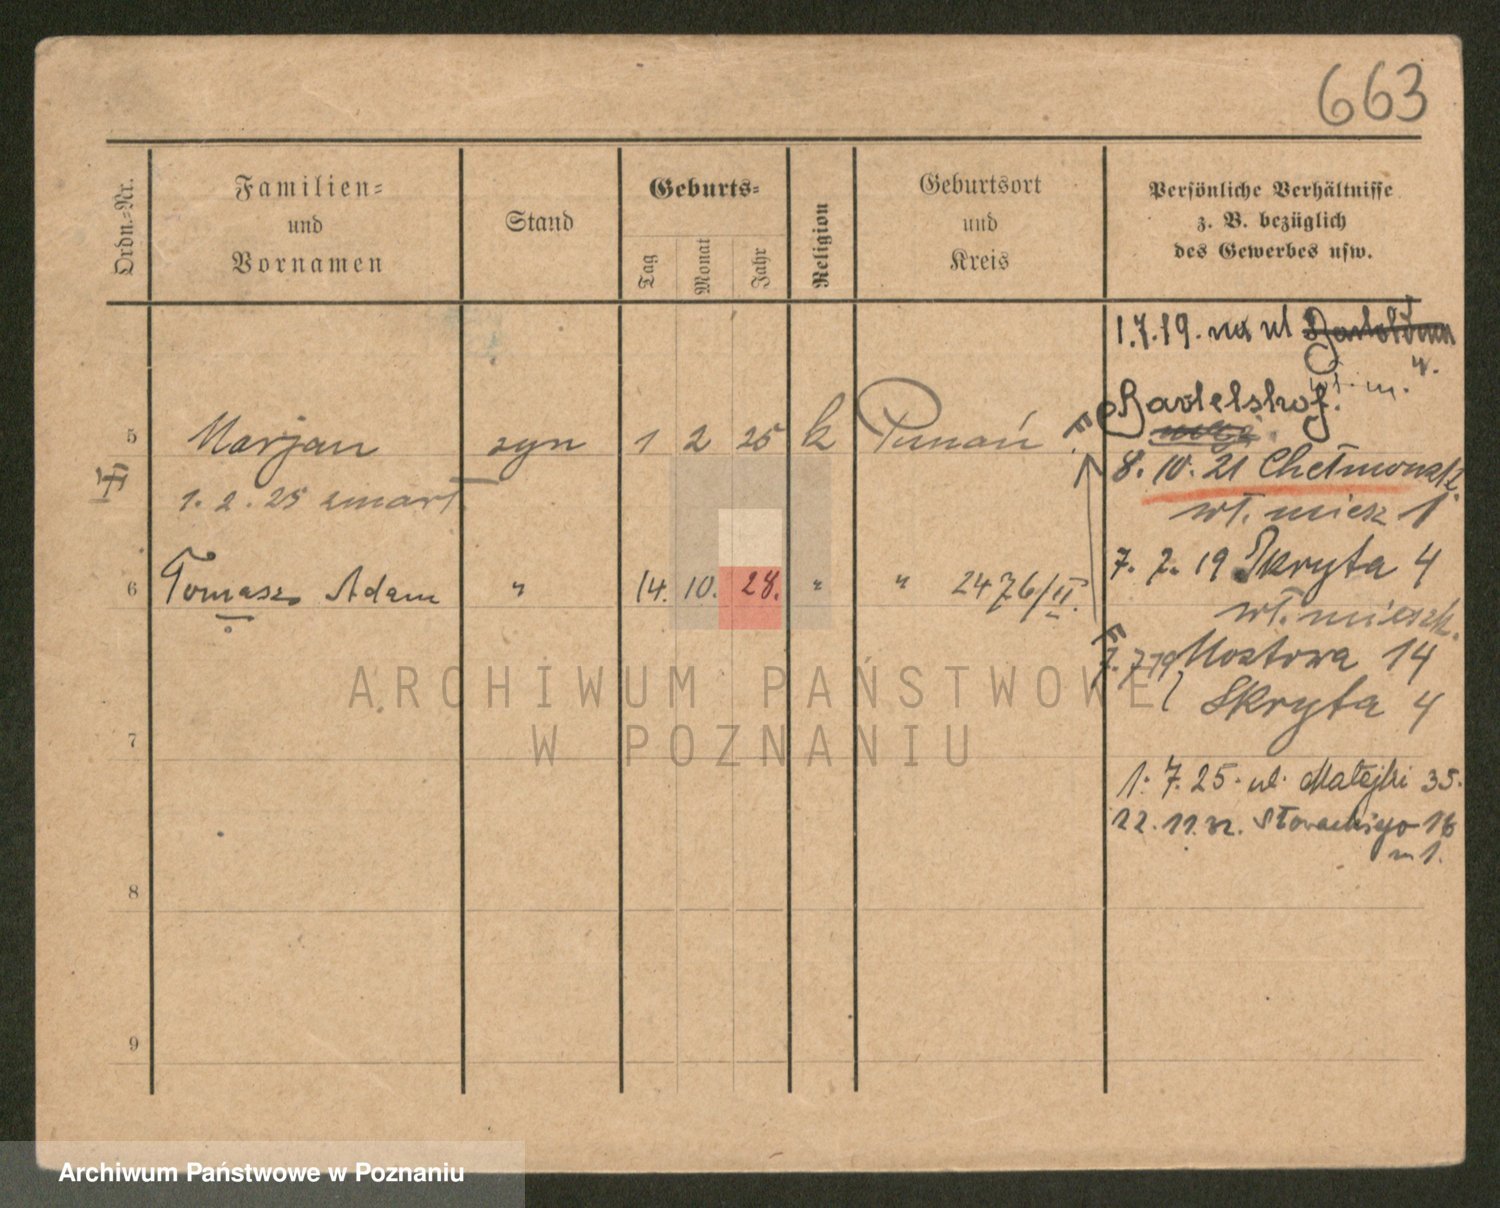 663
Ordn.=Nr.
Familien=
und
Vornamen
Stand
Geburts=
Tag
Monat
Jahr
Religion
Geburtsort
und
Kreis
Persönliche Verhältnisse
z. B. bezüglich
des Gewerbes usw.
1.7.19. na ul
4.
Bartelshof.
5 Marjan syn 1 2 25 k Poznań
8. 10. 21 Chełmońsk.
1. 2. 25 zmarł
wł. miesz 1
6 Tomasz Adam " 14. 10. 28. " " 2476/II.
7. 7. 19 Skryta 4
wł. mieszk.
7. 7 19 Mostowa 14
Skryta 4
7
1. 7. 25. ul. Matejki 35.
22. 11. 32. Słowackiego 18
m 1.
8
9
ARCHIWUM PAŃSTWOWE
W POZNANIU
Archiwum Państwowe w Poznaniu